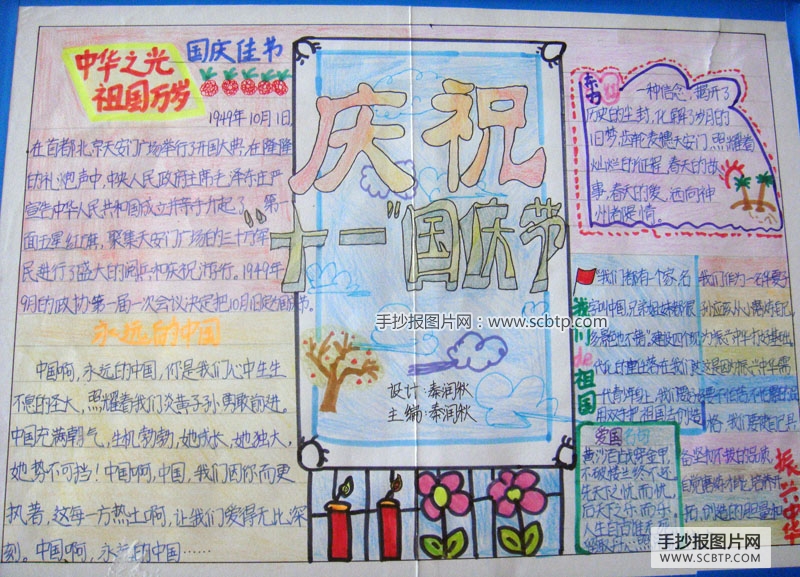 中华之光
祖国万岁
国庆佳节
1949年10月1日,
在首都北京天安门广场举行了开国大典,在隆隆
的礼炮声中,中央人民政府主席毛泽东庄严
宣告中华人民共和国成立并
升起了第一
面五星红旗,聚集天安门广场的三十万军
民进行了盛大的阅兵和庆祝游行。1949年
9月的政协第一届一次会议决定把10月1日
国庆节。
永远的中国
中国啊,永远的中国,你是我们心中生生
不息的圣火,照耀着我们炎黄子孙勇敢前进。
中国充满朝气,生机勃勃,她成长,她独大,
她势不可挡!中国啊,中国,我们因你而更
执著,这每一方热土啊,让我们爱得无比深
刻。中国啊,永远的中国……
庆祝
"十一"国庆节
手抄报图片网:www.scbtp.com
设计:秦润秋
主编:秦润秋
一种信念,揭开了
历史的尘封,化解了岁月的
旧梦,
天安门,照耀着
灿烂的征程,春天的故
事,春天的
神
州
我们de祖国
"我们都有个家,名
字叫中国,兄弟姐妹都很
多,景色也不错"
我们作为一名华夏子
孙应该从小
爱国名句
黄沙百战穿金甲,
不破楼兰终不还
先天下之忧而忧,
后天下之乐而乐。
人生自古谁无
振兴中华
手抄报图片网
WWW.SCBTP.COM